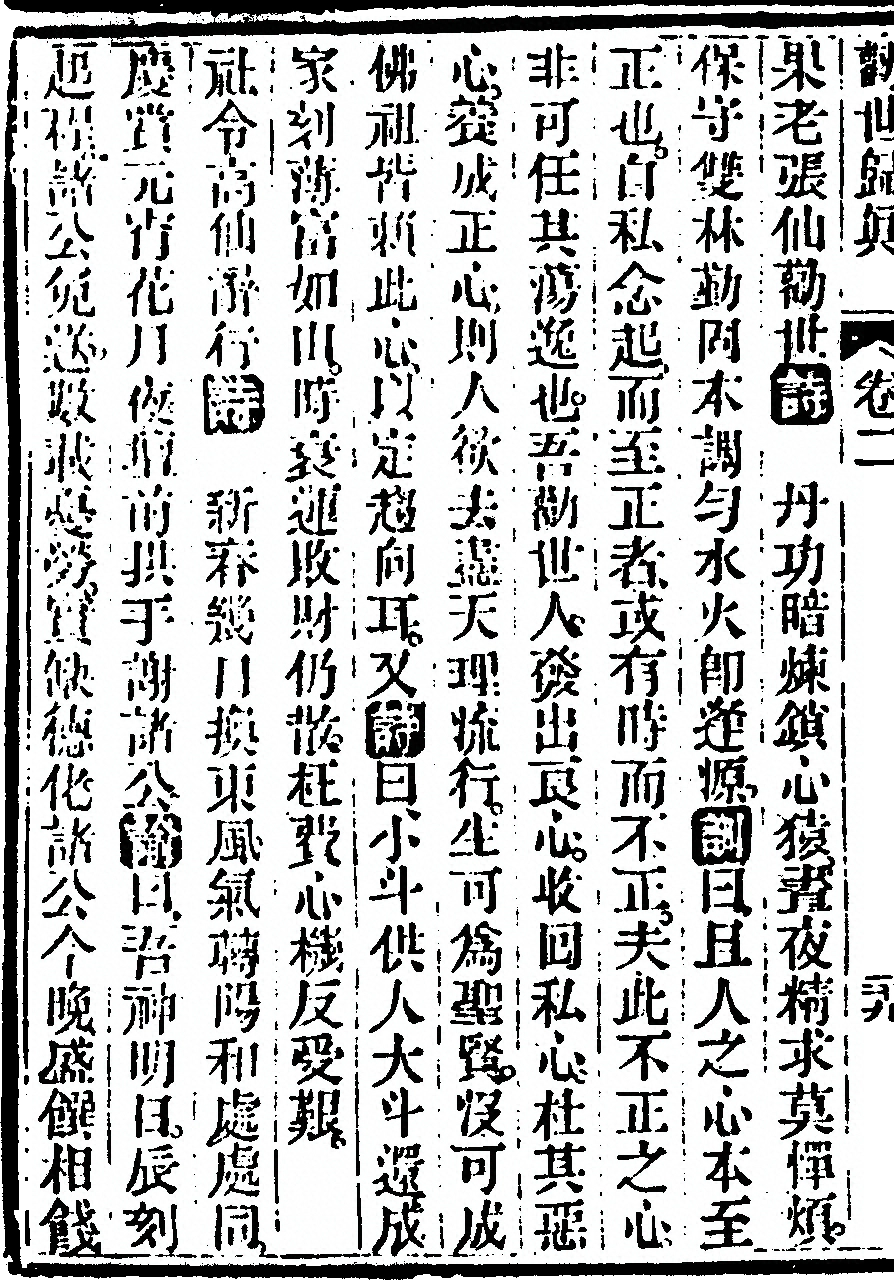 勸世歸真 卷二 
果老張仙勸世詩 丹功暗煉鎖心猿晝夜精求莫憚煩
保守雙林勤固本調勻水火即逢源訓曰且人之心本至
正也自私念起而至正者或有時而不正夫此不正之心
非可任其蕩逸也吾勸世人發出良心收回私心杜其惡
心養成正心則人欲去盡天理流行生可為聖賢沒可成
佛祖皆賴此心以定趨向耳又詩曰小斗供人大斗還成
家刻薄富如山時衰運敗財仍散枉費心機反受艱
社令高仙辭行詩 新春幾日換東風氣轉陽和處處同
慶賞元宵花月夜壇前拱手謝諸公諭曰吾神明日辰刻
起程諸公免送數載憂勞實缺德化諸公今晚盛饌相餞